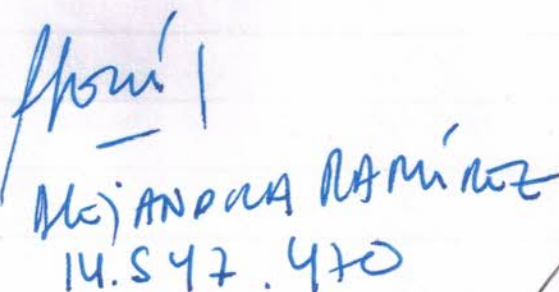 Alejandra Ramírez
14.547.470